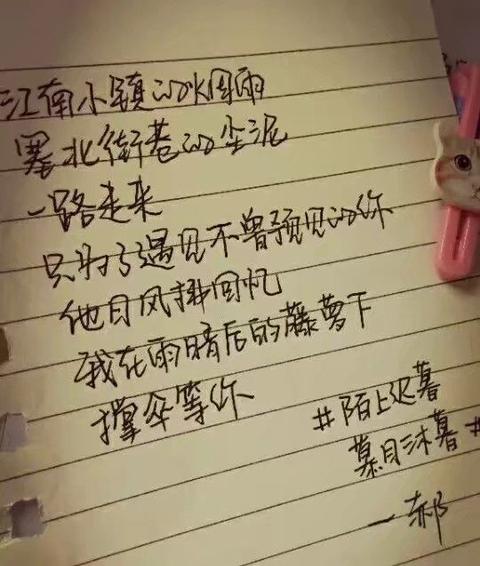 江南小镇的烟雨
塞北街巷的尘泥
一路走来
只为了遇见不曾预见的你
他日风拂回忆
我在雨晴后的藤萝下
撑伞等你
#陌上迟暮
慕目沐暮#
一郝